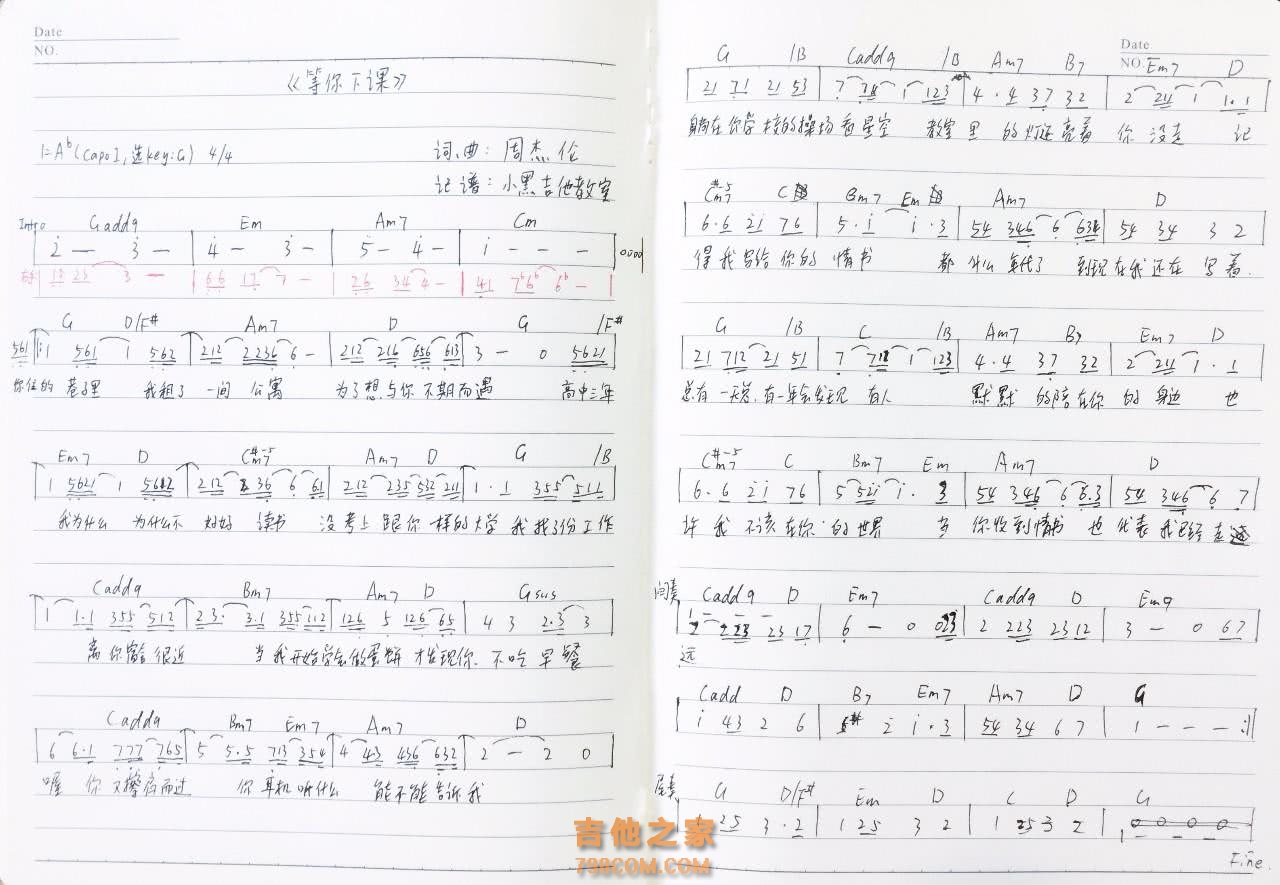 Date
NO.
《等你下课》
1=Aᵇ(Capo1,选key:G) 4/4
词、曲: 周杰伦
记谱: 小黑吉他教室
Intro Gadd9 Em Am7 Cm
2̇ — 3̇ — | 4̇ — 3̇ — | 5̇ — 4̇ — | 1̇ — — —
G D/F# Am7 D G /F#
561 |: 1 561 1 562 | 212 2236 6 — | 212 216 656 613 | 3 — 0 5621
你住的 巷子里 我租了 一间 公寓 为了想与你 不期而遇 高中三年
Em7 D C#m7-5 Am7 D G /B
1 5621 1 5612 | 212 2 36 6 61 | 212 235 532 211 | 1·1 355 511
我为什么 为什么不 好好 读书 没考上 跟你一样的大学 我找了份工作
Cadd9 Bm7 Am7 D Gsus
1 1·1 355 512 | 23· 3·1 355 112 | 126 5 126 65 | 4 3 2·3 3
离你宿舍很近 当我开始学会做蛋饼 才发现你 不吃 早餐
Cadd9 Bm7 Em7 Am7 D
6 6·1 777 765 | 5 5·5 713 354 | 4 43 436 632 | 2 — 2 0
喔 你 又擦肩而过 你 耳机听什么 能不能告诉我
Date
NO.
G /B Cadd9 /B Am7 B7 Em7 D
21 71 21 53 | 7 1 123 | 4·4 37 32 | 2 211 1 1·1
躺在你学校的操场看星空 教室里 的灯还亮着 你 没走 记
C#m7-5 C Bm7 Em Am7 D
6·6 2i 76 | 5·i i·3 | 54 346 6 634 | 54 34 3 2
得我写给你的 情书 都 什么 年代了 到现在我还在 写着.
G /B C /B Am7 B7 Em7 D
21 712 21 51 | 7 1 123 | 4·4 37 32 | 2 211 1·1
总有一天总有一年会发现 有人 默默 的陪在你 的 身边 也
C#m7-5 C Bm7 Em Am7 D
6·6 2i 76 | 5 52i i· 3 | 54 346 6 6·3 | 54 346 6 7
许 我 不该在你 的世界 当 你收到情书 也 代表 我已经 走远
间奏 Cadd9 D Em7 Cadd9 D Em9
223 23 17 | 6 — 0 023 | 2 223 23 12 | 3 — 0 67
远
Cadd D B7 Em7 Am7 D G
i 43 2 6 | 5# 2 i i·3 | 54 34 6 7 | 1 — — — :||
尾奏 G D/F# Em D C D G
25 3·2 | 1 25 3 2 | 1 25 3 2 | 0 0 0 0
Fine.
吉他之家
798COM.COM